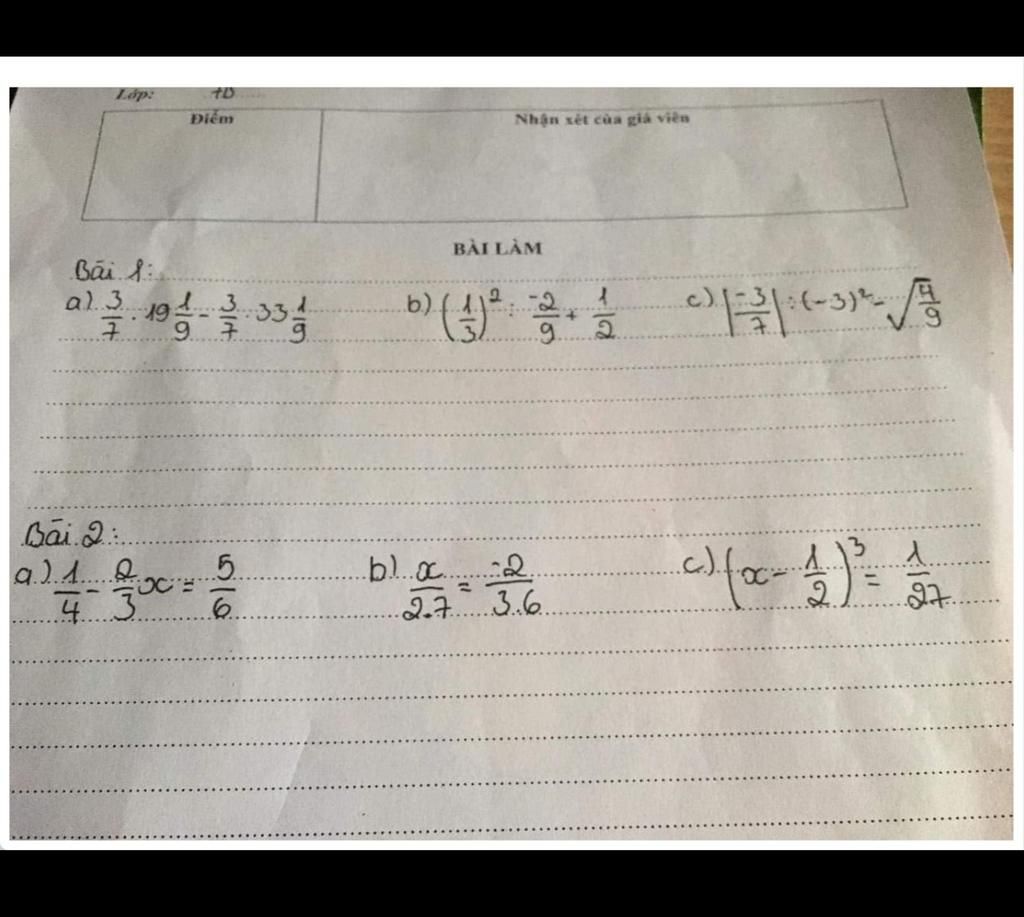 Lớp: 7D
Điểm
Nhận xét của giá viên
BÀI LÀM
Bài 1:
a) 3/7 . 19 1/9 - 3/7 . 33 1/9 b) (1/3)² : -2/9 + 1/2 c) |-3/7| : (-3)² - √(4/9)
Bài 2:
a) 1/4 - 2/3 x = 5/6 b) x/2.7 = -2/3.6 c) (x - 1/2)³ = 1/27